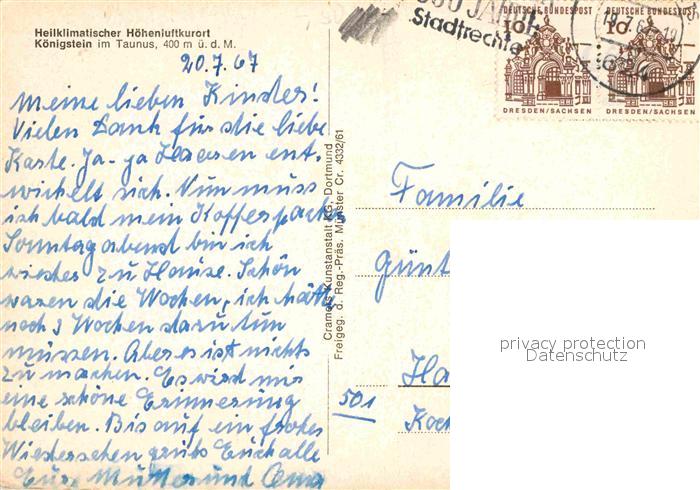 Heilklimatischer Höhenluftkurort
Königstein im Taunus, 400 m ü. d. M.
20.7.67
Meine lieben Kinder!
Vielen Dank für die liebe
Karte. Ja-ja ent-
wickelt sich. Nun muss
ich bald mein Koffer packen
Sonntag abend bin ich
wieder zu Hause. Schön
waren die Wochen, ich hätte
noch 3 Wochen dazu tun
müssen. Aber es ist nichts
zu machen. Es wird mir
eine schöne Erinnerung
bleiben. Bis auf ein frohes
Wiedersehen grüßt Euch alle
Eure Mutter und Oma
Cramers Kunstanstalt KG, Dortmund
Freigeg. d. Reg.-Präs. Münster Cr. 4332/61
JAHRE
Stadtrechte
DEUTSCHE BUNDESPOST
10
DRESDEN/SACHSEN
DEUTSCHE BUNDESPOST
10
DRESDEN/SACHSEN
Familie
Günt
Ha
501
Koch
privacy protection
Datenschutz